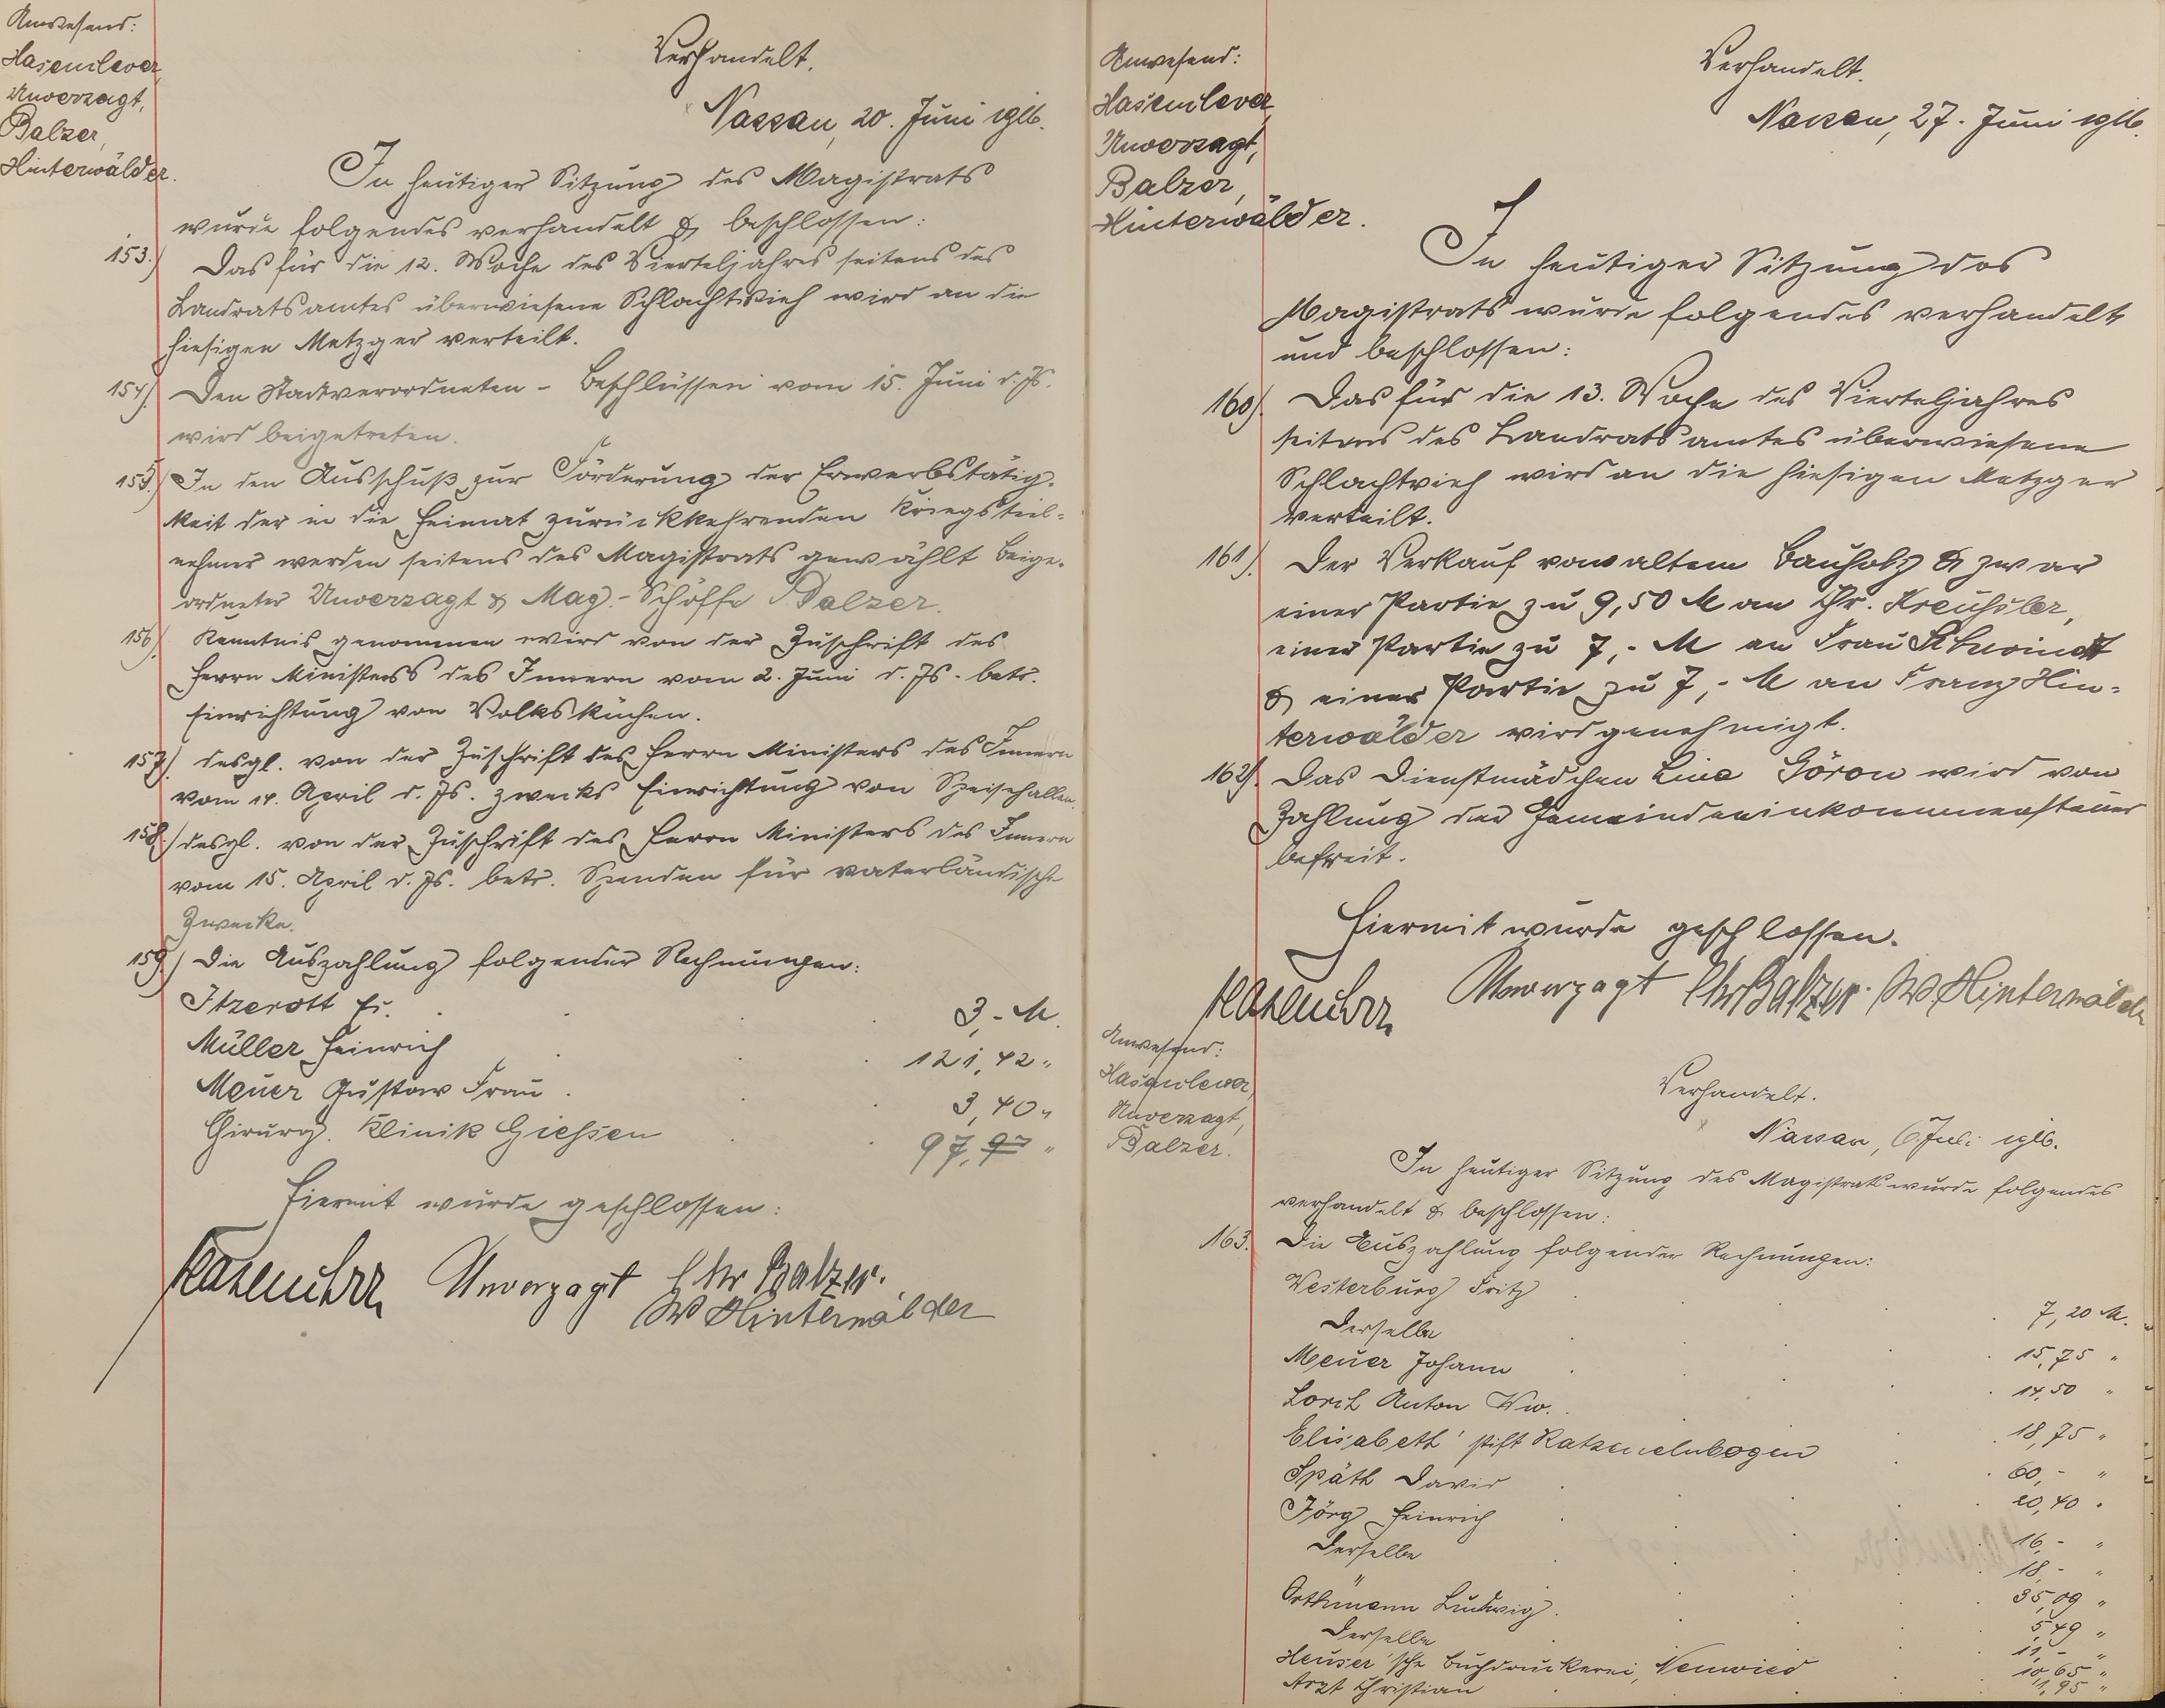 Anwesend:
Hasenclever,
Unverzagt,
Balzer,
Hinterwälder.
Verhandelt.
Nassau, 20. Juni 1916.
In heutiger Sitzung des Magistrats
wurde folgendes verhandelt & beschlossen:
153.) Das für die 12. Woche des Vierteljahres seitens des
Landratsamtes überwiesene Schlachtvieh wird an die
hiesigen Metzger verteilt.
154). Den Stadtverordneten - Beschlüssen vom 15. Juni d. Js.
wird beigetreten.
155.) In den Ausschuß zur Förderung der Erwerbstätig-
keit der in die Heimat zurückkehrenden Kriegsteil-
nehmer werden seitens des Magistrats gewählt Beige-
ordneter Unverzagt & Mag.-Schöffe Balzer.
156). Kenntnis genommen wird von der Zuschrift des
Herrn Ministers des Innern vom 2. Juni d. Js. betr.
Einrichtung von Volksküchen.
157). desgl. von der Zuschrift des Herrn Ministers des Innern
vom 14. April d. Js. zwecks Einrichtung von Speisehallen.
158.) desgl. von der Zuschrift des Herrn Ministers des Innern
vom 15. April d. Js. betr. Spenden für vaterländische
Zwecke.
159.) Die Auszahlung folgender Rechnungen:
Itzerott Fr. 3,- M.
Müller Heinrich 121,42 "
Meuer Gustav Frau 3,40 "
Chirurg. Klinik Giessen 97,97 "
Hiermit wurde geschlossen:
Hasenclever Unverzagt Chr Balzer.
W Hinterwälder
Anwesend:
Hasenclever,
Unverzagt,
Balzer,
Hinterwälder.
Verhandelt.
Nassau, 27. Juni 1916.
In heutiger Sitzung des
Magistrats wurde folgendes verhandelt
und beschlossen:
160). Das für die 13. Woche des Vierteljahres
seitens des Landratsamtes überwiesene
Schlachtvieh wird an die hiesigen Metzger
verteilt.
161). Der Verkauf von altem Bauholz & zwar
einer Partie zu 9,50 M an Chr. Kreussler,
einer Partie zu 7,- M an Frau
& einer Partie zu 7,- M an Franz Hin-
terwälder wird genehmigt.
162). Das Dienstmädchen Lina wird von
Zahlung der Gemeindeeinkommensteuer
befreit.
Hiermit wurde geschlossen.
Hasenclever Unverzagt Chr Balzer. W Hinterwälder
Anwesend:
Hasenclever,
Unverzagt,
Balzer.
Verhandelt.
Nassau, 6. Juli 1916.
In heutiger Sitzung des Magistrats wurde folgendes
verhandelt & beschlossen:
163. Die Auszahlung folgender Rechnungen:
Westerburg Fritz 7,20 M.
Derselbe 15,75 "
Meuer Johann 14,50 "
Lorch Anton Ww. 18,75 "
Elisabeth'stift Katzenelnbogen 60,- "
Späth David 20,40 "
Jörg Heinrich 16,- "
Derselbe 18,- "
" 35,09 "
Orthmann Ludwig. 5,49 "
Derselbe 11,- "
Heuser'sche Buchdruckerei, Neuwied 10,65 "
Arzt Christian 1,95 "